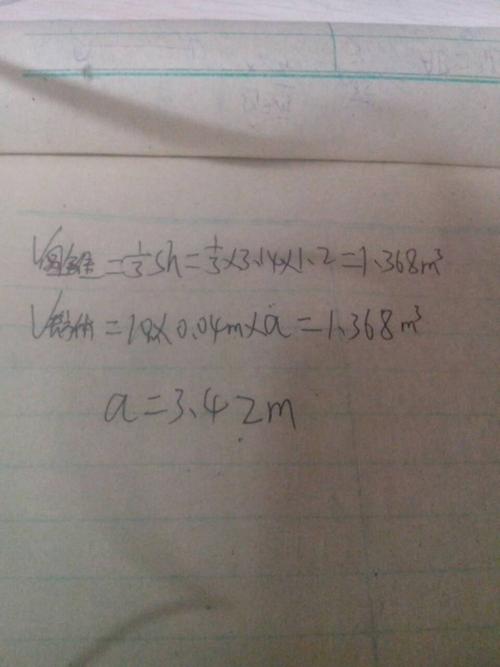 V圆锥=1/3Sh=1/3×3.14×1.2=1.368m³
V长方体=10×0.04m×a=1.368m³
a=3.42m